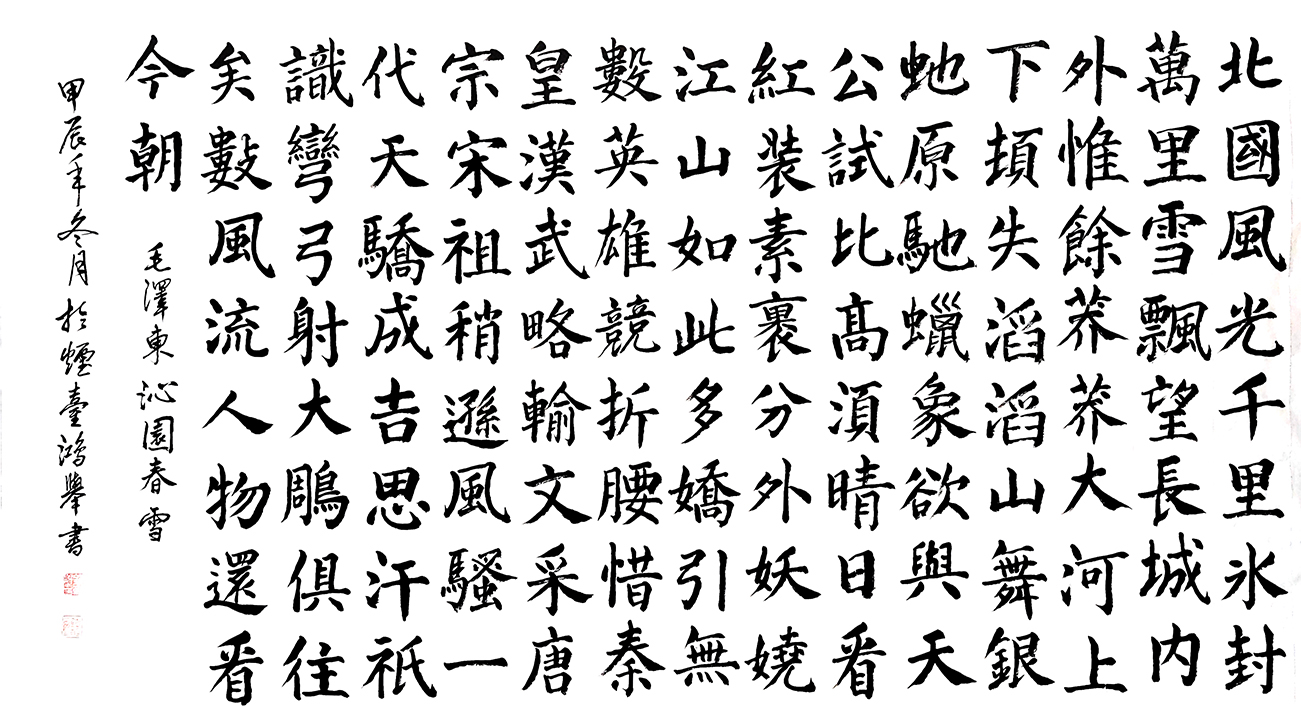 北國風光千里氷封
萬里雪飄望長城内
外惟餘莽莽大河上
下頓失滔滔山舞銀
虵原馳蠟象欲與天
公試比髙湏晴日看
紅装素裹分外妖嬈
江山如此多嬌引無
數英雄競折腰惜秦
皇漢武略輸文采唐
宗宋祖稍遜風騷一
代天驕成吉思汗祇
識彎弓射大鵰俱往
矣數風流人物還看
今朝
毛澤東沁園春雪
甲辰年冬月於煙臺鴻舉書